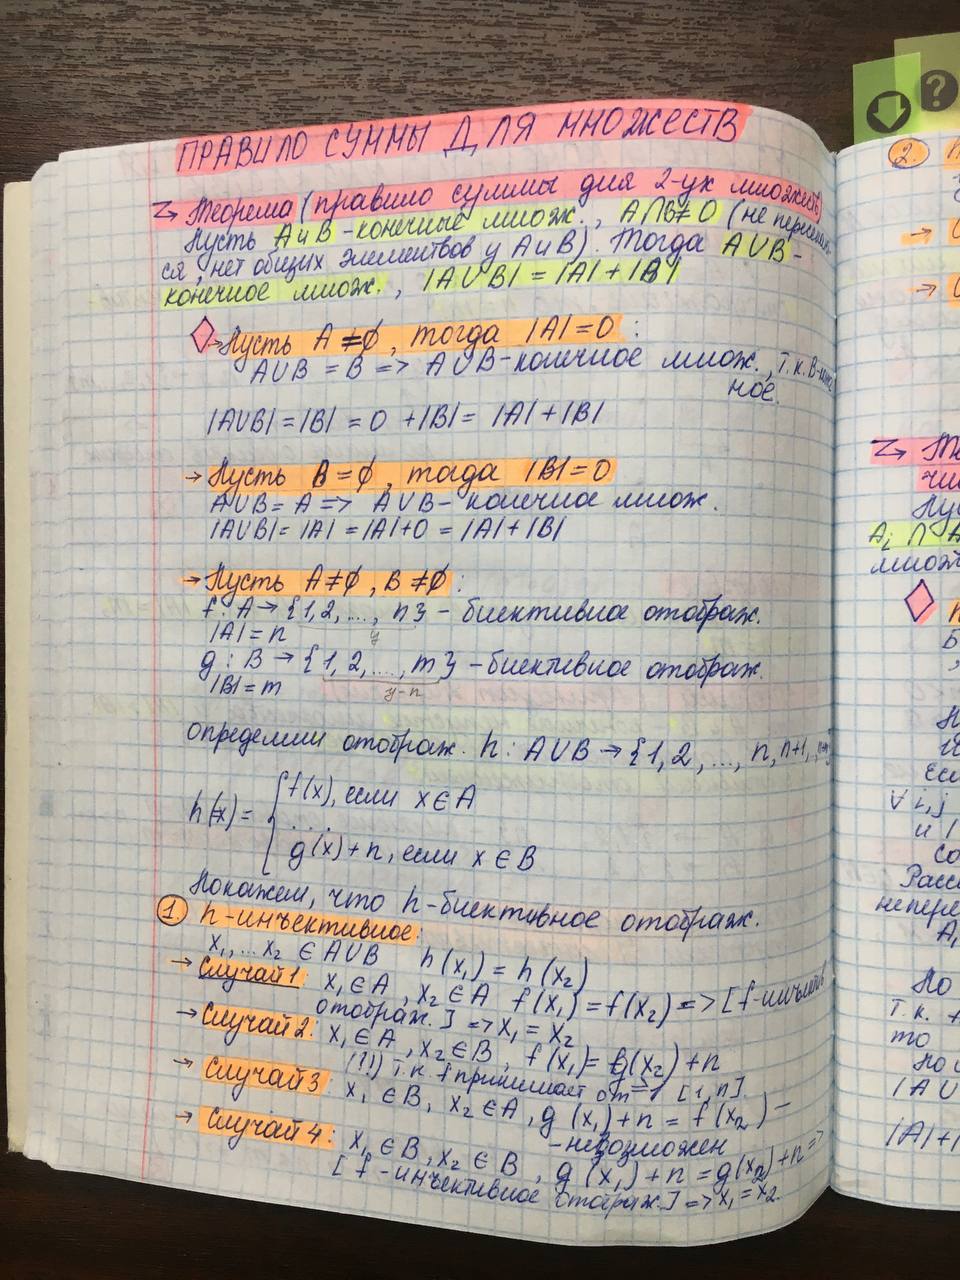 ПРАВИЛО СУММЫ ДЛЯ МНОЖЕСТВ
Теорема (правило суммы для 2-ух множеств)
Пусть A и B - конечные множ., A∩B≠0 (не пересекаю-
ся, нет общих элементов у A и B). Тогда A∪B -
конечное множ., |A∪B| = |A|+|B|
→ Пусть A≠∅, тогда |A|=0 :
A∪B = B => A∪B - конечное множ., т.к. B-
ное.
|A∪B| = |B| = 0 + |B| = |A| + |B|
→ Пусть B=∅, тогда |B|=0
A∪B = A => A∪B - конечное множ.
|A∪B| = |A| = |A|+0 = |A|+|B|
→ Пусть A≠∅, B≠∅ :
f: A → {1,2,..., n} - биективное отображ.
|A| = n y
g : B → {1, 2,..., m} - биективное отображ.
|B| = m y-n
определим отображ. h: A∪B → {1, 2, ..., n, n+1, ..., n+m}
h(x) = { f(x), если x∈A
....
g(x)+n, если x∈B
Покажем, что h-биективное отображ.
1. h-инъективное:
x₁,...x₂ ∈ A∪B h(x₁) = h(x₂)
→ Случай 1: x₁∈A, x₂∈A f(x₁) = f(x₂) => [f-инъектив
отображ.] => x₁ = x₂
→ Случай 2: x₁∈A, x₂∈B, f(x₁) = g(x₂) + n
(!!) т.к. f принимает от [1,n].
→ Случай 3 x₁∈B, x₂∈A, g(x₁)+n = f(x₂) -
- невозможен
→ Случай 4: x₁∈B, x₂∈B, g(x₁)+n = g(x₂)+n =>
[f-инъективное отображ.] => x₁ = x₂.
2.
A₁ ∩ A
множ
∀ i,j
и |
Расс
непере
Но
т.к.
то
|A∪
|A|+|